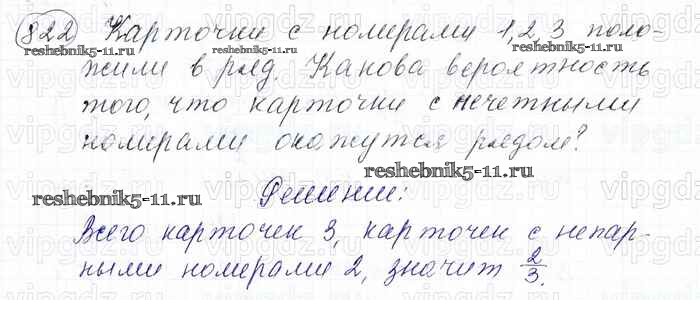 822 Карточки с номерами 1, 2, 3 поло-
жили в ряд. Какова вероятность
того, что карточки с нечетными
номерами окажутся рядом?
Решение:
Всего карточек 3, карточек с непар-
ными номерами 2, значит 2/3.
reshebnik5-11.ru
reshebnik5-11.ru
reshebnik5-11.ru
reshebnik5-11.ru
reshebnik5-11.ru
vipgdz.ru